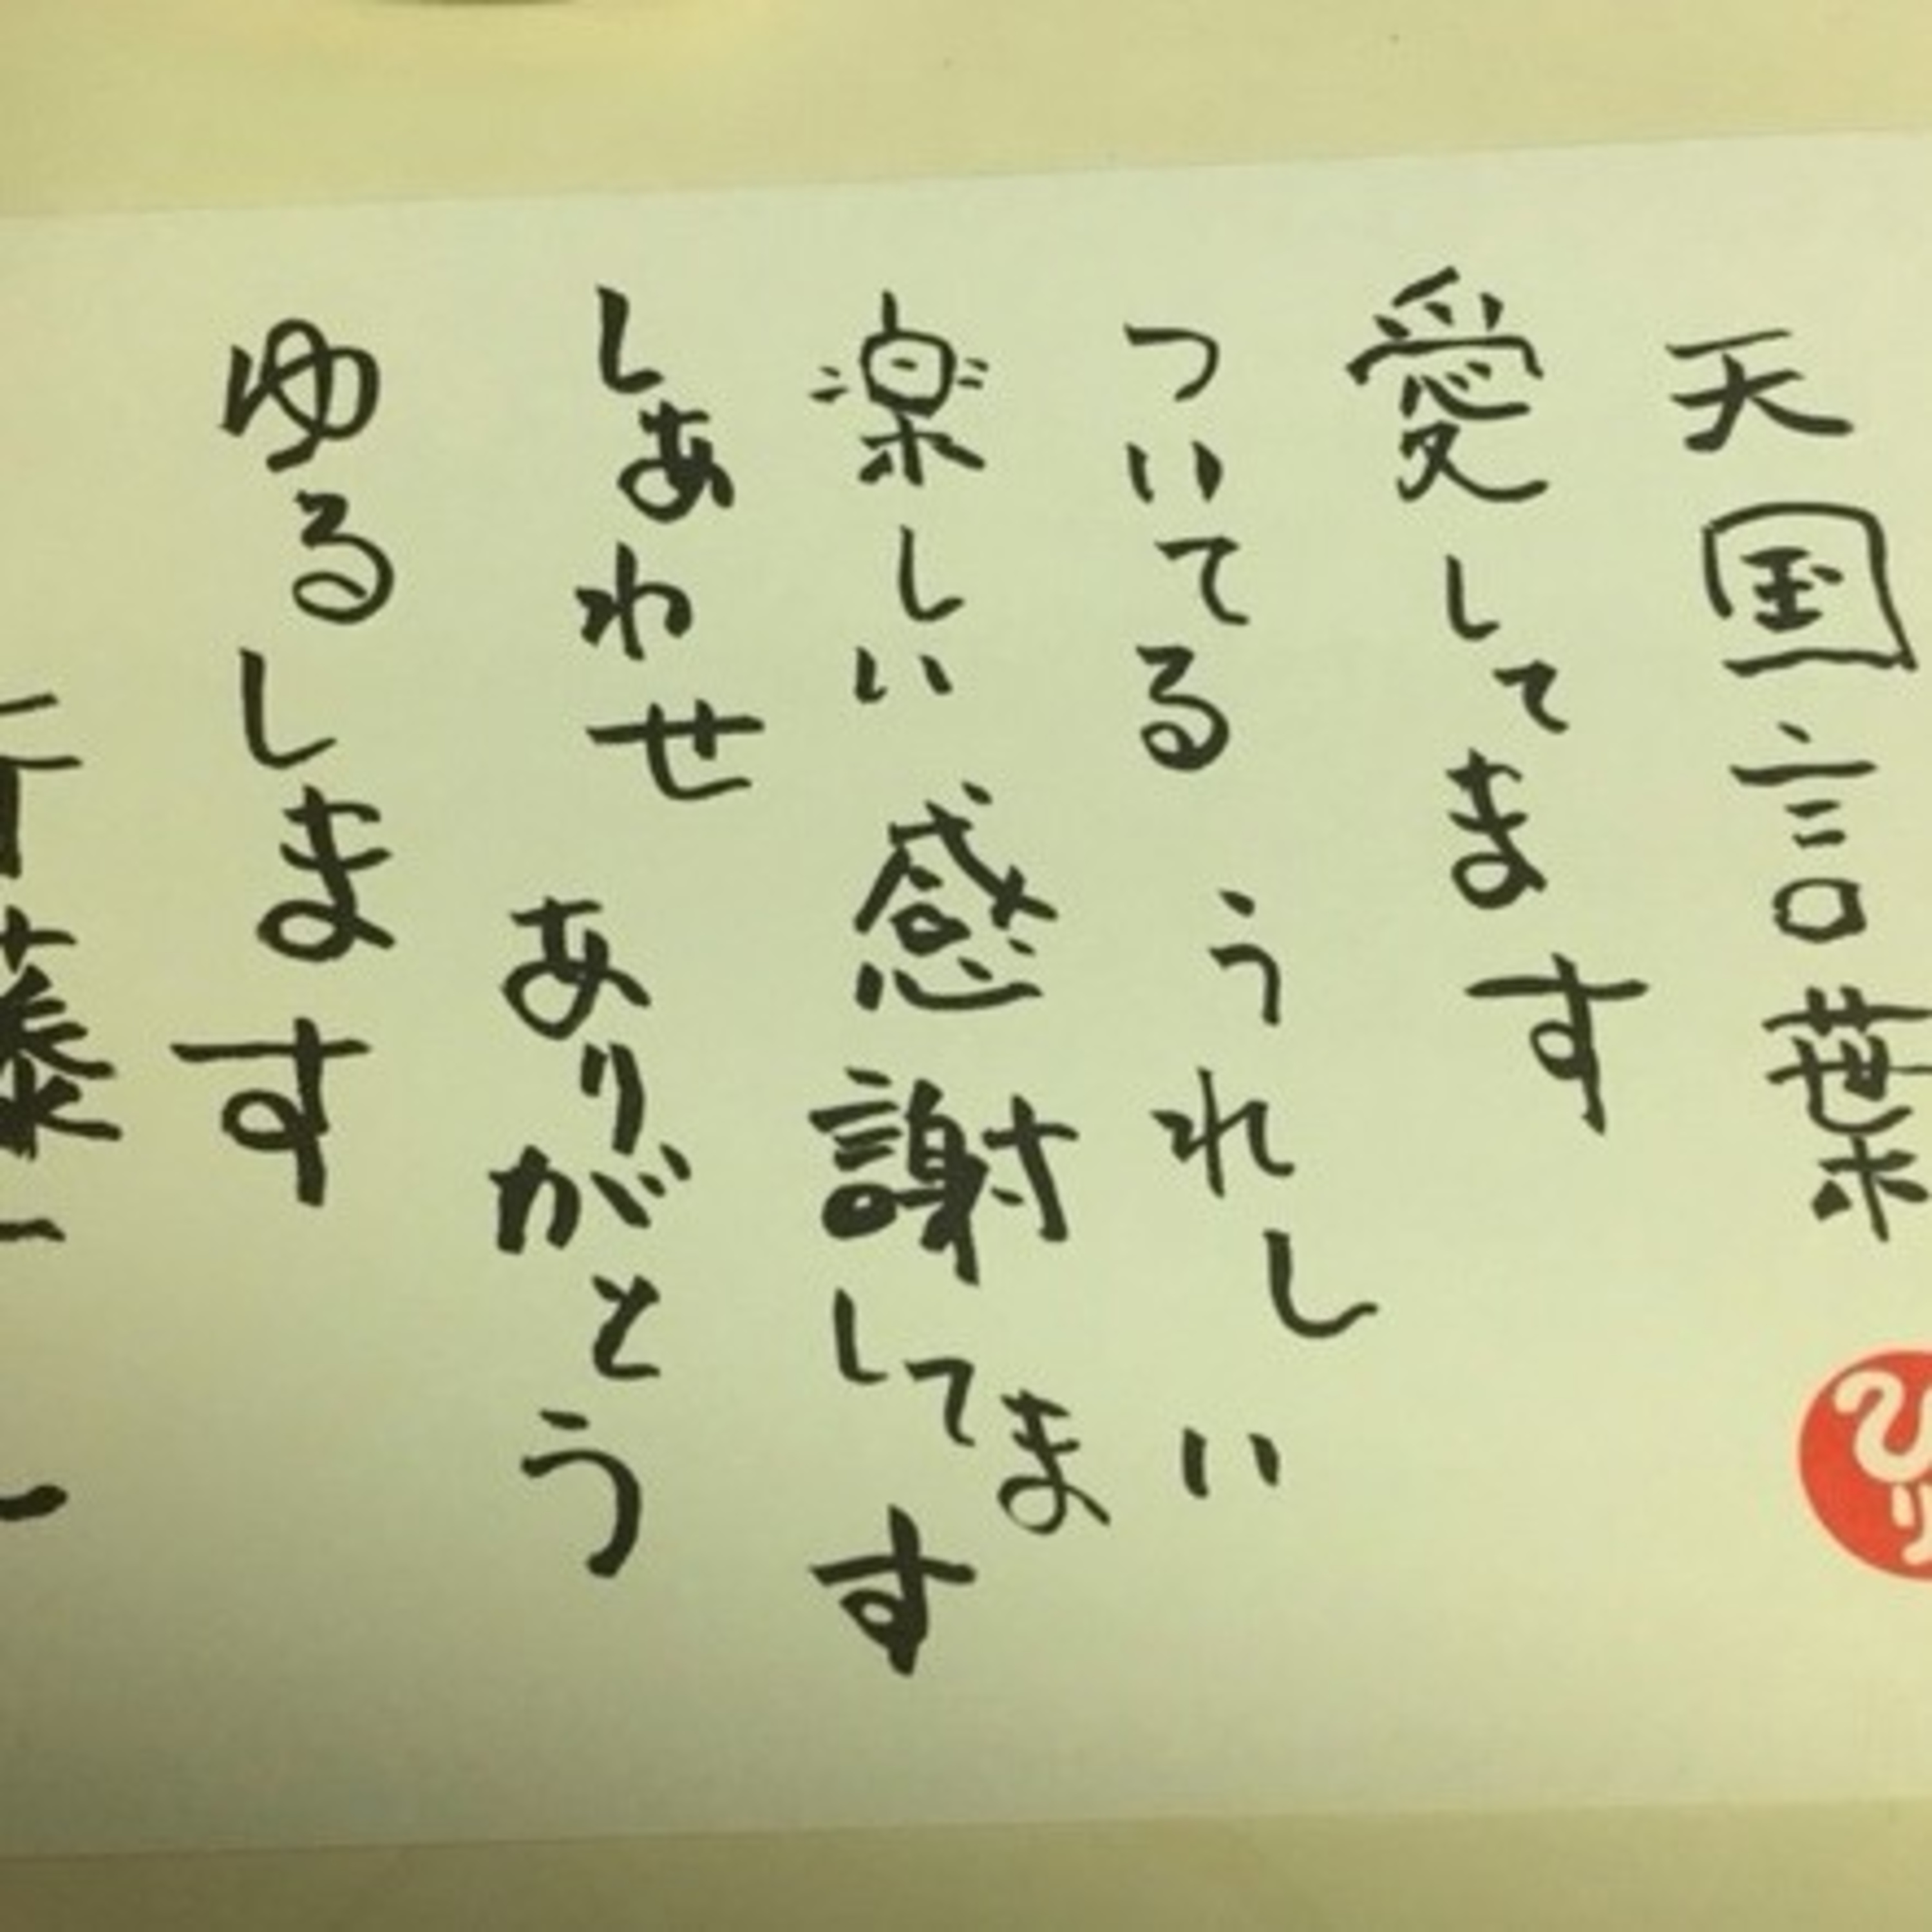 天国言葉
愛してます
ついてる うれしい
楽しい 感謝してます
しあわせ ありがとう
ゆるします